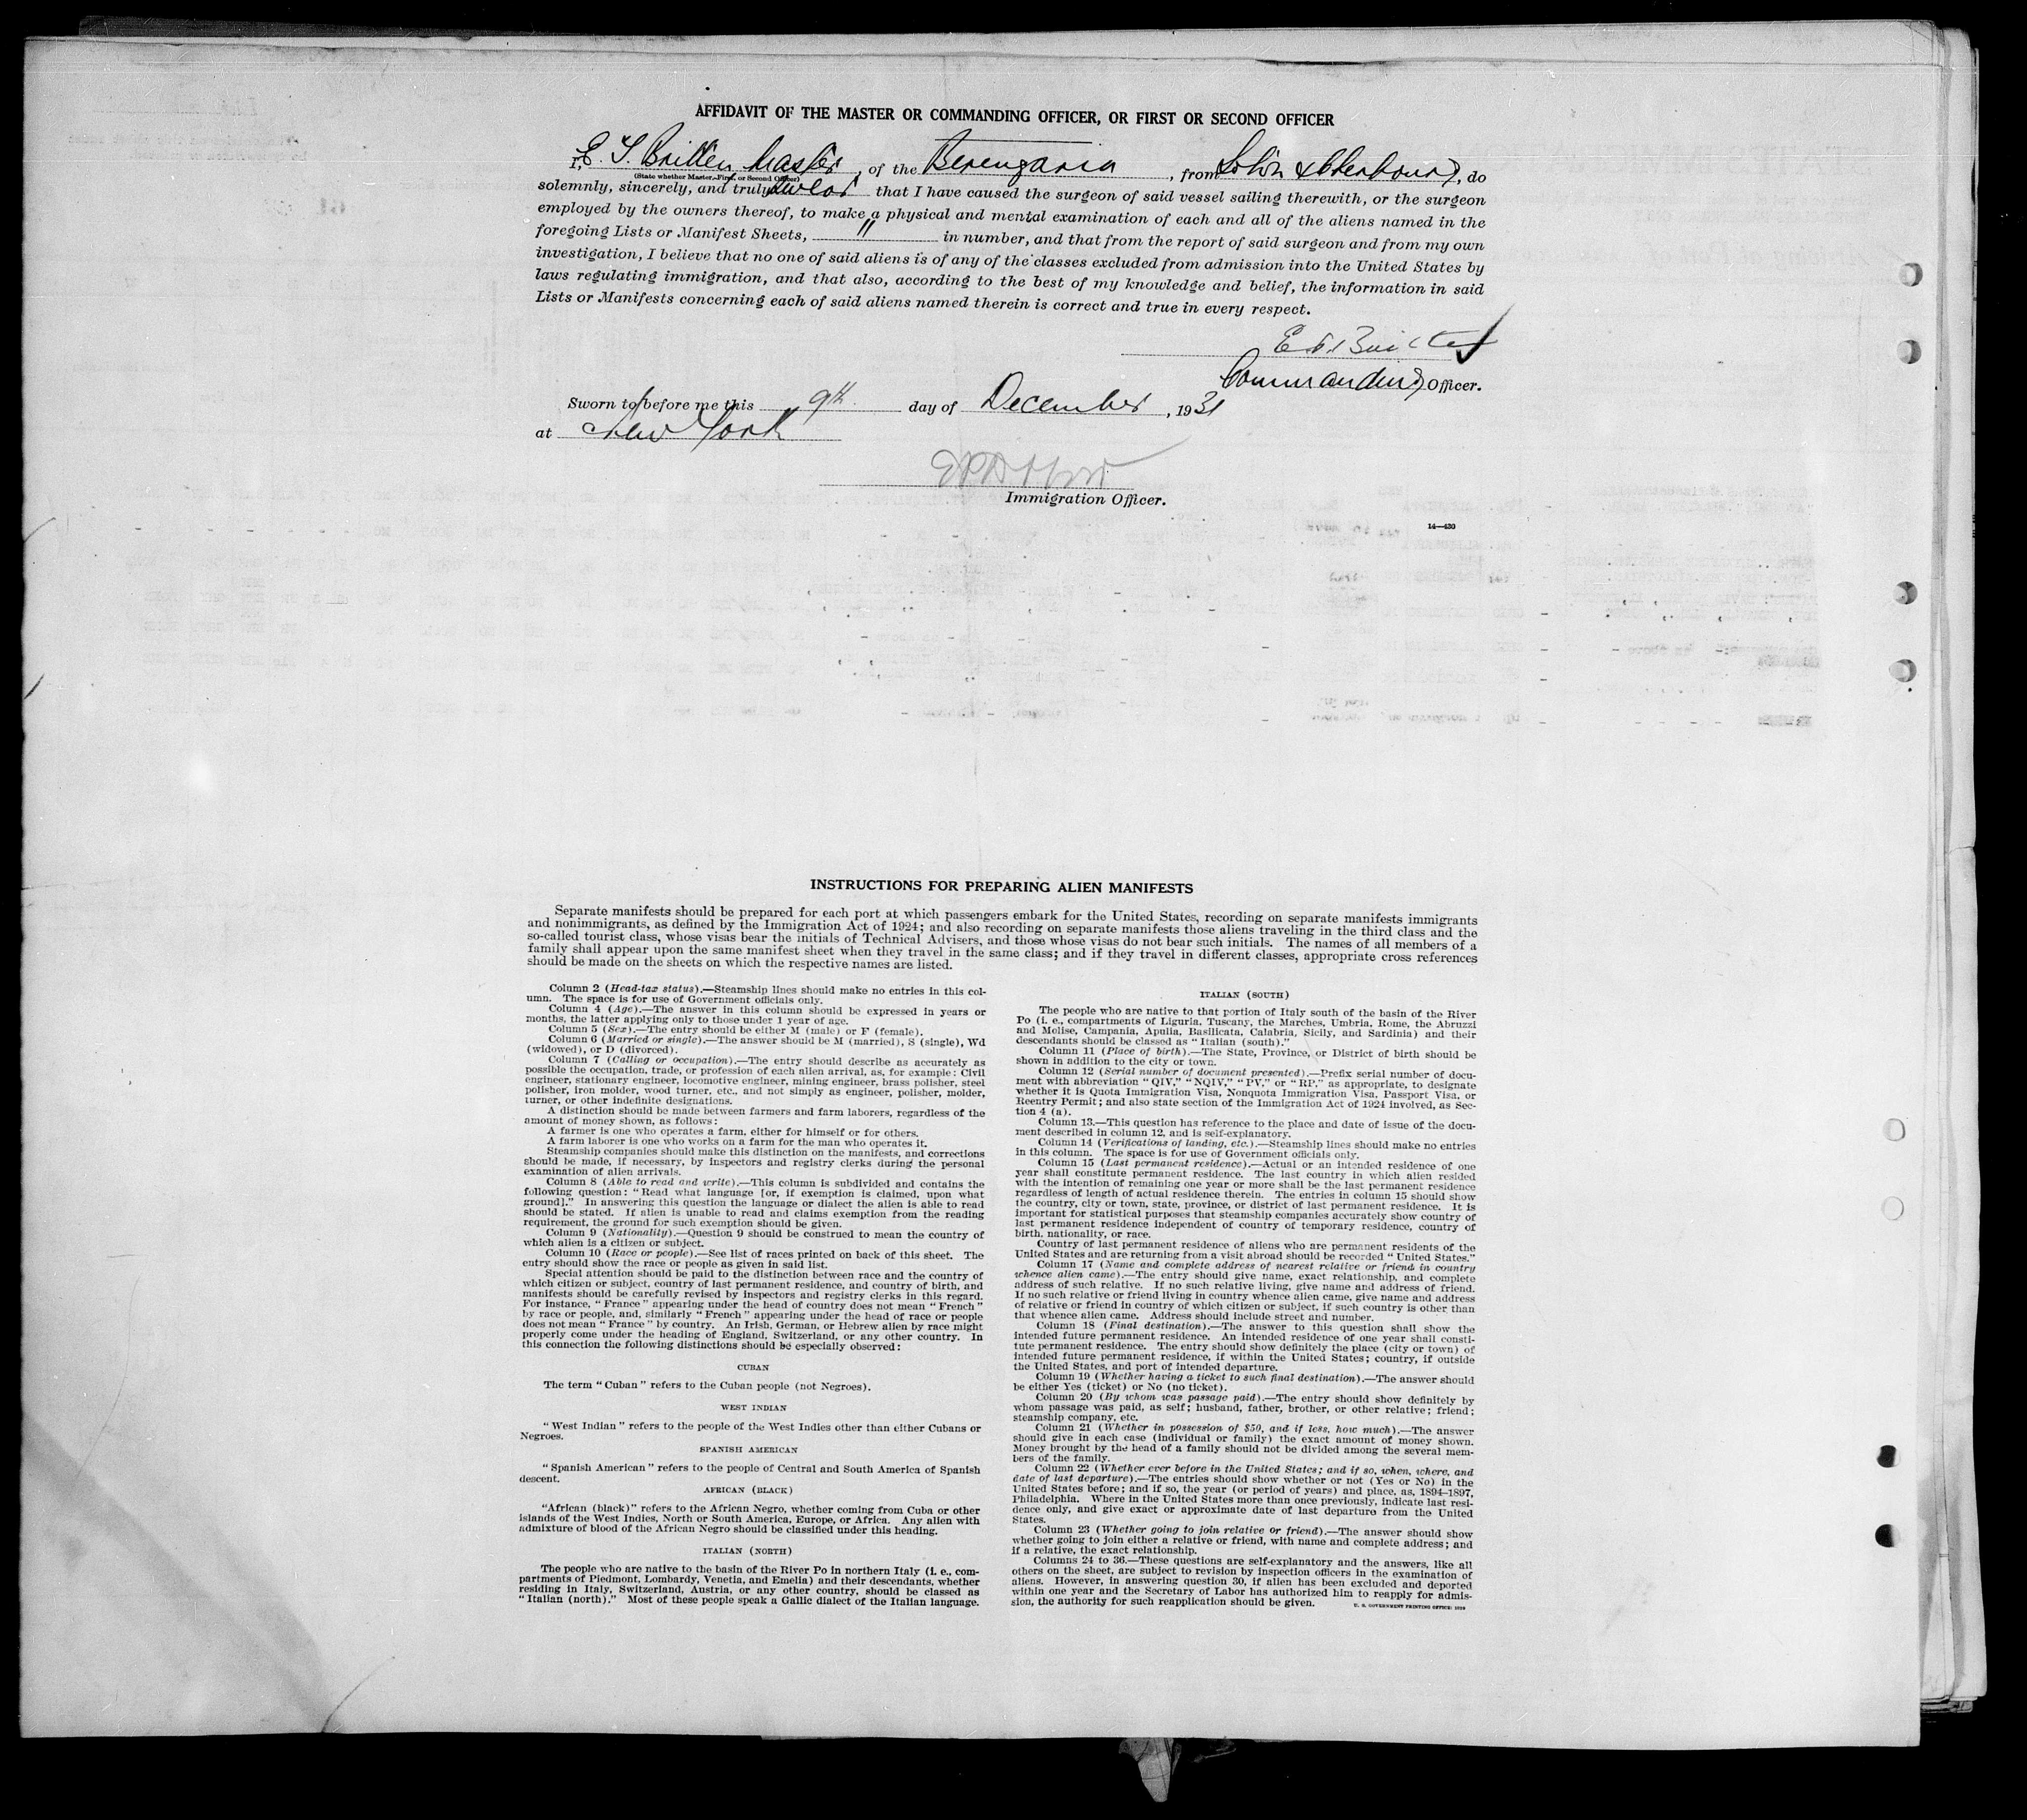 AFFIDAVIT OF THE MASTER OR COMMANDING OFFICER, OR FIRST OR SECOND OFFICER
I, E. T. Britten, Master, of the Berengaria, from Soton & Cherbourg, do
(State whether Master, First, or Second Officer)
solemnly, sincerely, and truly swear that I have caused the surgeon of said vessel sailing therewith, or the surgeon
employed by the owners thereof, to make a physical and mental examination of each and all of the aliens named in the
foregoing Lists or Manifest Sheets, 11 in number, and that from the report of said surgeon and from my own
investigation, I believe that no one of said aliens is of any of the classes excluded from admission into the United States by
laws regulating immigration, and that also, according to the best of my knowledge and belief, the information in said
Lists or Manifests concerning each of said aliens named therein is correct and true in every respect.
E. T. Britten
Commanding Officer.
Sworn to before me this 9th day of December, 1931
at New York
Immigration Officer.
14—430
INSTRUCTIONS FOR PREPARING ALIEN MANIFESTS
Separate manifests should be prepared for each port at which passengers embark for the United States, recording on separate manifests immigrants
and nonimmigrants, as defined by the Immigration Act of 1924; and also recording on separate manifests those aliens traveling in the third class and the
so-called tourist class, whose visas bear the initials of Technical Advisers, and those whose visas do not bear such initials. The names of all members of a
family shall appear upon the same manifest sheet when they travel in the same class; and if they travel in different classes, appropriate cross references
should be made on the sheets on which the respective names are listed.
Column 2 (Head-tax status).—Steamship lines should make no entries in this col-
umn. The space is for use of Government officials only.
Column 4 (Age).—The answer in this column should be expressed in years or
months, the latter applying only to those under 1 year of age.
Column 5 (Sex).—The entry should be either M (male) or F (female).
Column 6 (Married or single).—The answer should be M (married), S (single), Wd
(widowed), or D (divorced).
Column 7 (Calling or occupation).—The entry should describe as accurately as
possible the occupation, trade, or profession of each alien arrival, as, for example: Civil
engineer, stationary engineer, locomotive engineer, mining engineer, brass polisher, steel
polisher, iron molder, wood turner, etc., and not simply as engineer, polisher, molder,
turner, or other indefinite designations.
A distinction should be made between farmers and farm laborers, regardless of the
amount of money shown, as follows:
A farmer is one who operates a farm, either for himself or for others.
A farm laborer is one who works on a farm for the man who operates it.
Steamship companies should make this distinction on the manifests, and corrections
should be made, if necessary, by inspectors and registry clerks during the personal
examination of alien arrivals.
Column 8 (Able to read and write).—This column is subdivided and contains the
following question: "Read what language [or, if exemption is claimed, upon what
ground]." In answering this question the language or dialect the alien is able to read
should be stated. If alien is unable to read and claims exemption from the reading
requirement, the ground for such exemption should be given.
Column 9 (Nationality).—Question 9 should be construed to mean the country of
which alien is a citizen or subject.
Column 10 (Race or people).—See list of races printed on back of this sheet. The
entry should show the race or people as given in said list.
Special attention should be paid to the distinction between race and the country of
which citizen or subject, country of last permanent residence, and country of birth, and
manifests should be carefully revised by inspectors and registry clerks in this regard.
For instance, "France" appearing under the head of country does not mean "French"
by race or people, and, similarly "French" appearing under the head of race or people
does not mean "France" by country. An Irish, German, or Hebrew alien by race might
properly come under the heading of England, Switzerland, or any other country. In
this connection the following distinctions should be especially observed:
CUBAN
The term "Cuban" refers to the Cuban people (not Negroes).
WEST INDIAN
"West Indian" refers to the people of the West Indies other than either Cubans or
Negroes.
SPANISH AMERICAN
"Spanish American" refers to the people of Central and South America of Spanish
descent.
AFRICAN (BLACK)
"African (black)" refers to the African Negro, whether coming from Cuba or other
islands of the West Indies, North or South America, Europe, or Africa. Any alien with
admixture of blood of the African Negro should be classified under this heading.
ITALIAN (NORTH)
The people who are native to the basin of the River Po in northern Italy (i. e., com-
partments of Piedmont, Lombardy, Venetia, and Emelia) and their descendants, whether
residing in Italy, Switzerland, Austria, or any other country, should be classed as
"Italian (north)." Most of these people speak a Gallic dialect of the Italian language.
ITALIAN (SOUTH)
The people who are native to that portion of Italy south of the basin of the River
Po (i. e., compartments of Liguria, Tuscany, the Marches, Umbria, Rome, the Abruzzi
and Molise, Campania, Apulia, Basilicata, Calabria, Sicily, and Sardinia) and their
descendants should be classed as "Italian (south)."
Column 11 (Place of birth).—The State, Province, or District of birth should be
shown in addition to the city or town.
Column 12 (Serial number of document presented).—Prefix serial number of docu-
ment with abbreviation "QIV," "NQIV," "PV," or "RP," as appropriate, to designate
whether it is Quota Immigration Visa, Nonquota Immigration Visa, Passport Visa, or
Reentry Permit; and also state section of the Immigration Act of 1924 involved, as Sec-
tion 4 (a).
Column 13.—This question has reference to the place and date of issue of the docu-
ment described in column 12, and is self-explanatory.
Column 14 (Verifications of landing, etc.).—Steamship lines should make no entries
in this column. The space is for use of Government officials only.
Column 15 (Last permanent residence).—Actual or an intended residence of one
year shall constitute permanent residence. The last country in which alien resided
with the intention of remaining one year or more shall be the last permanent residence
regardless of length of actual residence therein. The entries in column 15 should show
the country, city or town, state, province, or district of last permanent residence. It is
important for statistical purposes that steamship companies accurately show country of
last permanent residence independent of country of temporary residence, country of
birth, nationality, or race.
Country of last permanent residence of aliens who are permanent residents of the
United States and are returning from a visit abroad should be recorded "United States."
Column 17 (Name and complete address of nearest relative or friend in country
whence alien came).—The entry should give name, exact relationship, and complete
address of such relative. If no such relative living, give name and address of friend.
If no such relative or friend living in country whence alien came, give name and address
of relative or friend in country of which citizen or subject, if such country is other than
that whence alien came. Address should include street and number.
Column 18 (Final destination).—The answer to this question shall show the
intended future permanent residence. An intended residence of one year shall consti-
tute permanent residence. The entry should show definitely the place (city or town) of
intended future permanent residence, if within the United States; country, if outside
the United States, and port of intended departure.
Column 19 (Whether having a ticket to such final destination).—The answer should
be either Yes (ticket) or No (no ticket).
Column 20 (By whom was passage paid).—The entry should show definitely by
whom passage was paid, as self; husband, father, brother, or other relative; friend;
steamship company, etc.
Column 21 (Whether in possession of $50, and if less, how much).—The answer
should give in each case (individual or family) the exact amount of money shown.
Money brought by the head of a family should not be divided among the several mem-
bers of the family.
Column 22 (Whether ever before in the United States; and if so, when, where, and
date of last departure).—The entries should show whether or not (Yes or No) in the
United States before; and if so, the year (or period of years) and place, as, 1894–1897,
Philadelphia. Where in the United States more than once previously, indicate last resi-
dence only, and give exact or approximate date of last departure from the United
States.
Column 23 (Whether going to join relative or friend).—The answer should show
whether going to join either a relative or friend, with name and complete address; and
if a relative, the exact relationship.
Columns 24 to 36.—These questions are self-explanatory and the answers, like all
others on the sheet, are subject to revision by inspection officers in the examination of
aliens. However, in answering question 30, if alien has been excluded and deported
within one year and the Secretary of Labor has authorized him to reapply for admis-
sion, the authority for such reapplication should be given.
U. S. GOVERNMENT PRINTING OFFICE: 1929